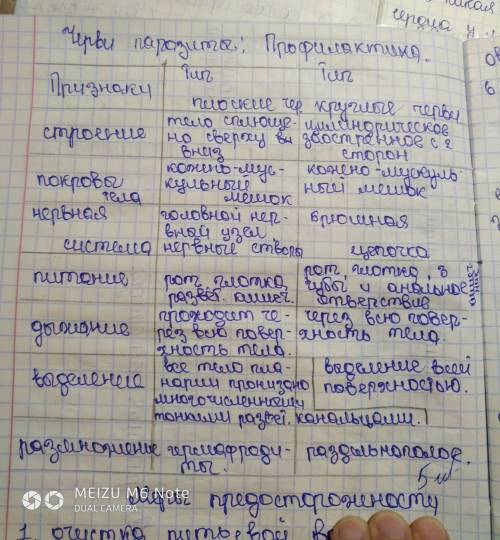 сердца у
Черви паразиты: Профилактика.
Признаки
Тип
Тип
плоские чер круглые черви
строение
тело сплюще- цилиндрическое
но сверху вн заостренное с 2
вниз
сторон
покровы
тела
кожено-мус-
кульный
мешок
кожено-мускуль-
ный мешок
нервная
система
головной нер-
вный узел
нервные стволы
брюшная
цепочка
питание
рот, глотка,
развет. кишеч.
рот, глотка, 3
губы и анальное
отверствие
дыхание
проходит че-
рез всю повер-
хность тела.
через всю повер-
хность тела.
выделение
все тело пла-
нарии пронизано
многочисленными
тонкими развет. канальцами.
выделение всей
поверхностью.
размножение
гермафроди-
ты.
раздельнополое.
MEIZU M6 Note
DUAL CAMERA
предосторожности
1. очистка питьевой